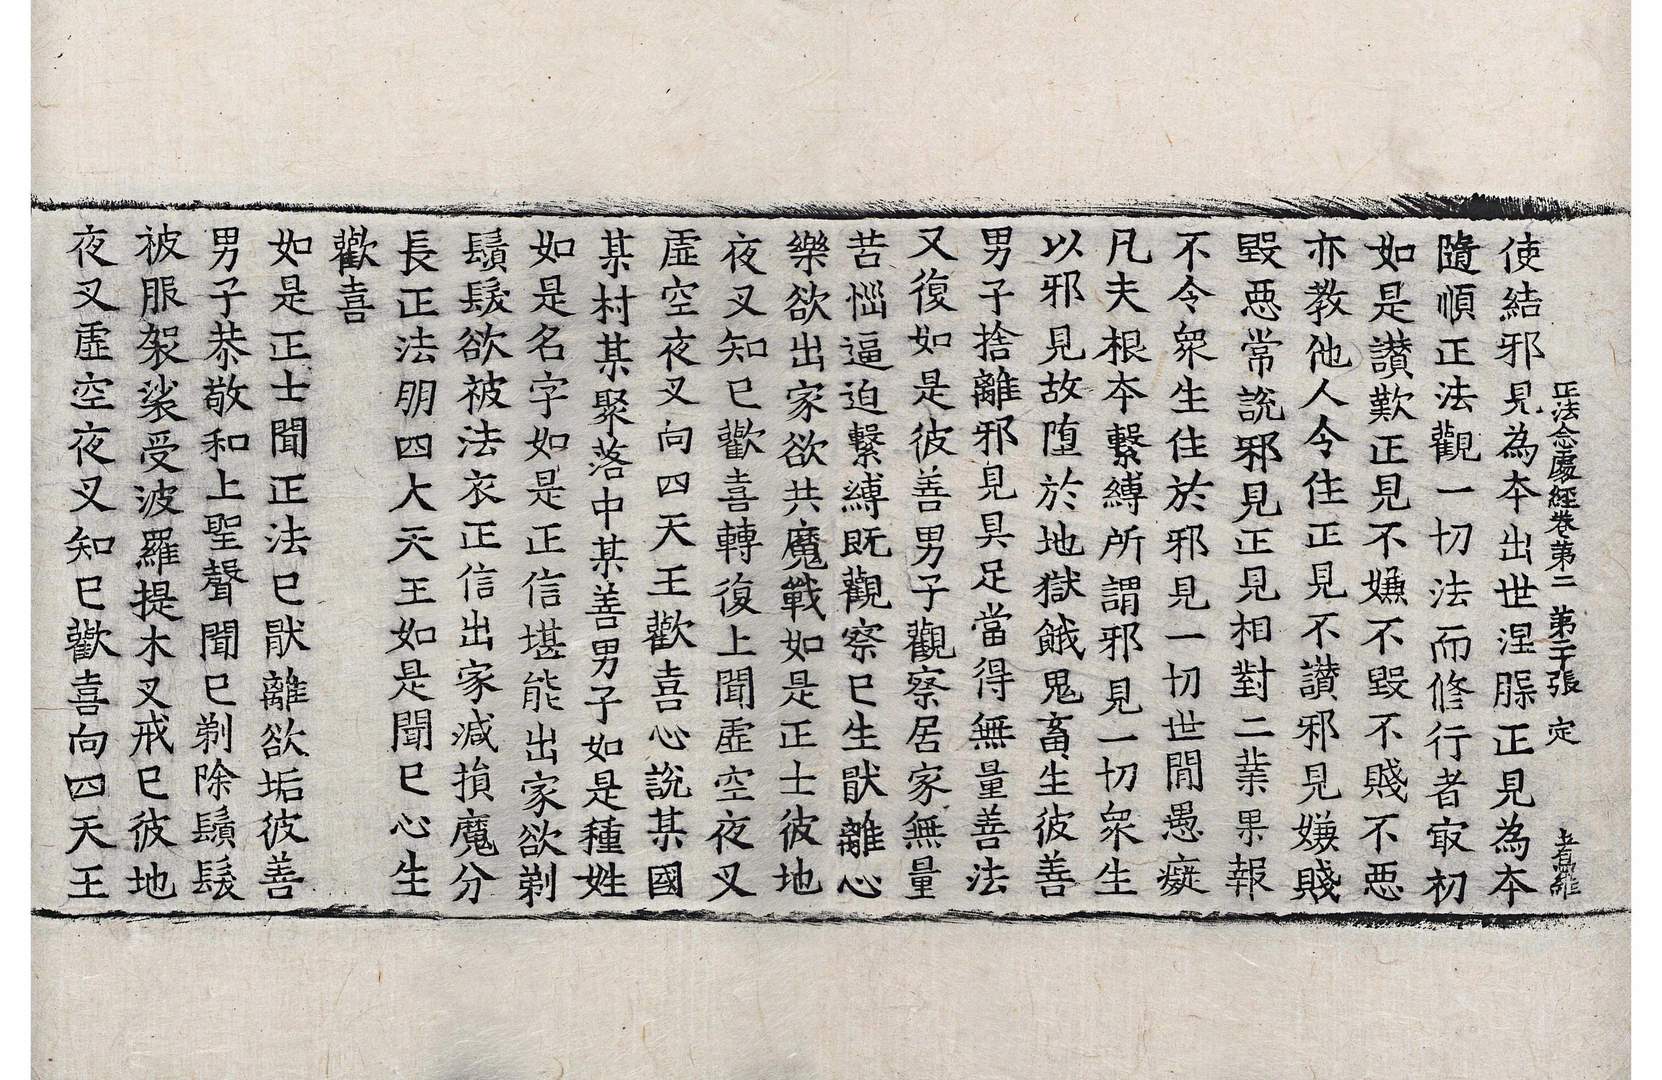 正法念處經卷第二 第二十張 定
使結邪見為本出世涅槃正見為本
隨順正法觀一切法而修行者㝡初
如是讃歎正見不嫌不毀不賤不惡
亦教他人令住正見不讃邪見嫌賤
毀惡常說邪見正見相對二業果報
不令衆生住於邪見一切世間愚癡
凡夫根本繫縛所謂邪見一切衆生
以邪見故墮於地獄餓鬼畜生彼善
男子捨離邪見具足當得無量善法
又復如是彼善男子觀察居家無量
苦惱逼迫繫縛既觀察已生猒離心
樂欲出家欲共魔戰如是正士彼地
夜叉知已歡喜轉復上聞虛空夜叉
虛空夜叉向四天王歡喜心說某國
某村某聚落中某善男子如是種姓
如是名字如是正信堪能出家欲剃
鬚髮欲被法衣正信出家減損魔分
長正法朋四大天王如是聞已心生
歡喜
如是正士聞正法已猒離欲垢彼善
男子恭敬和上聖聲聞已剃除鬚髮
被服袈裟受波羅提木叉戒已彼地
夜叉虛空夜叉知已歡喜向四天王